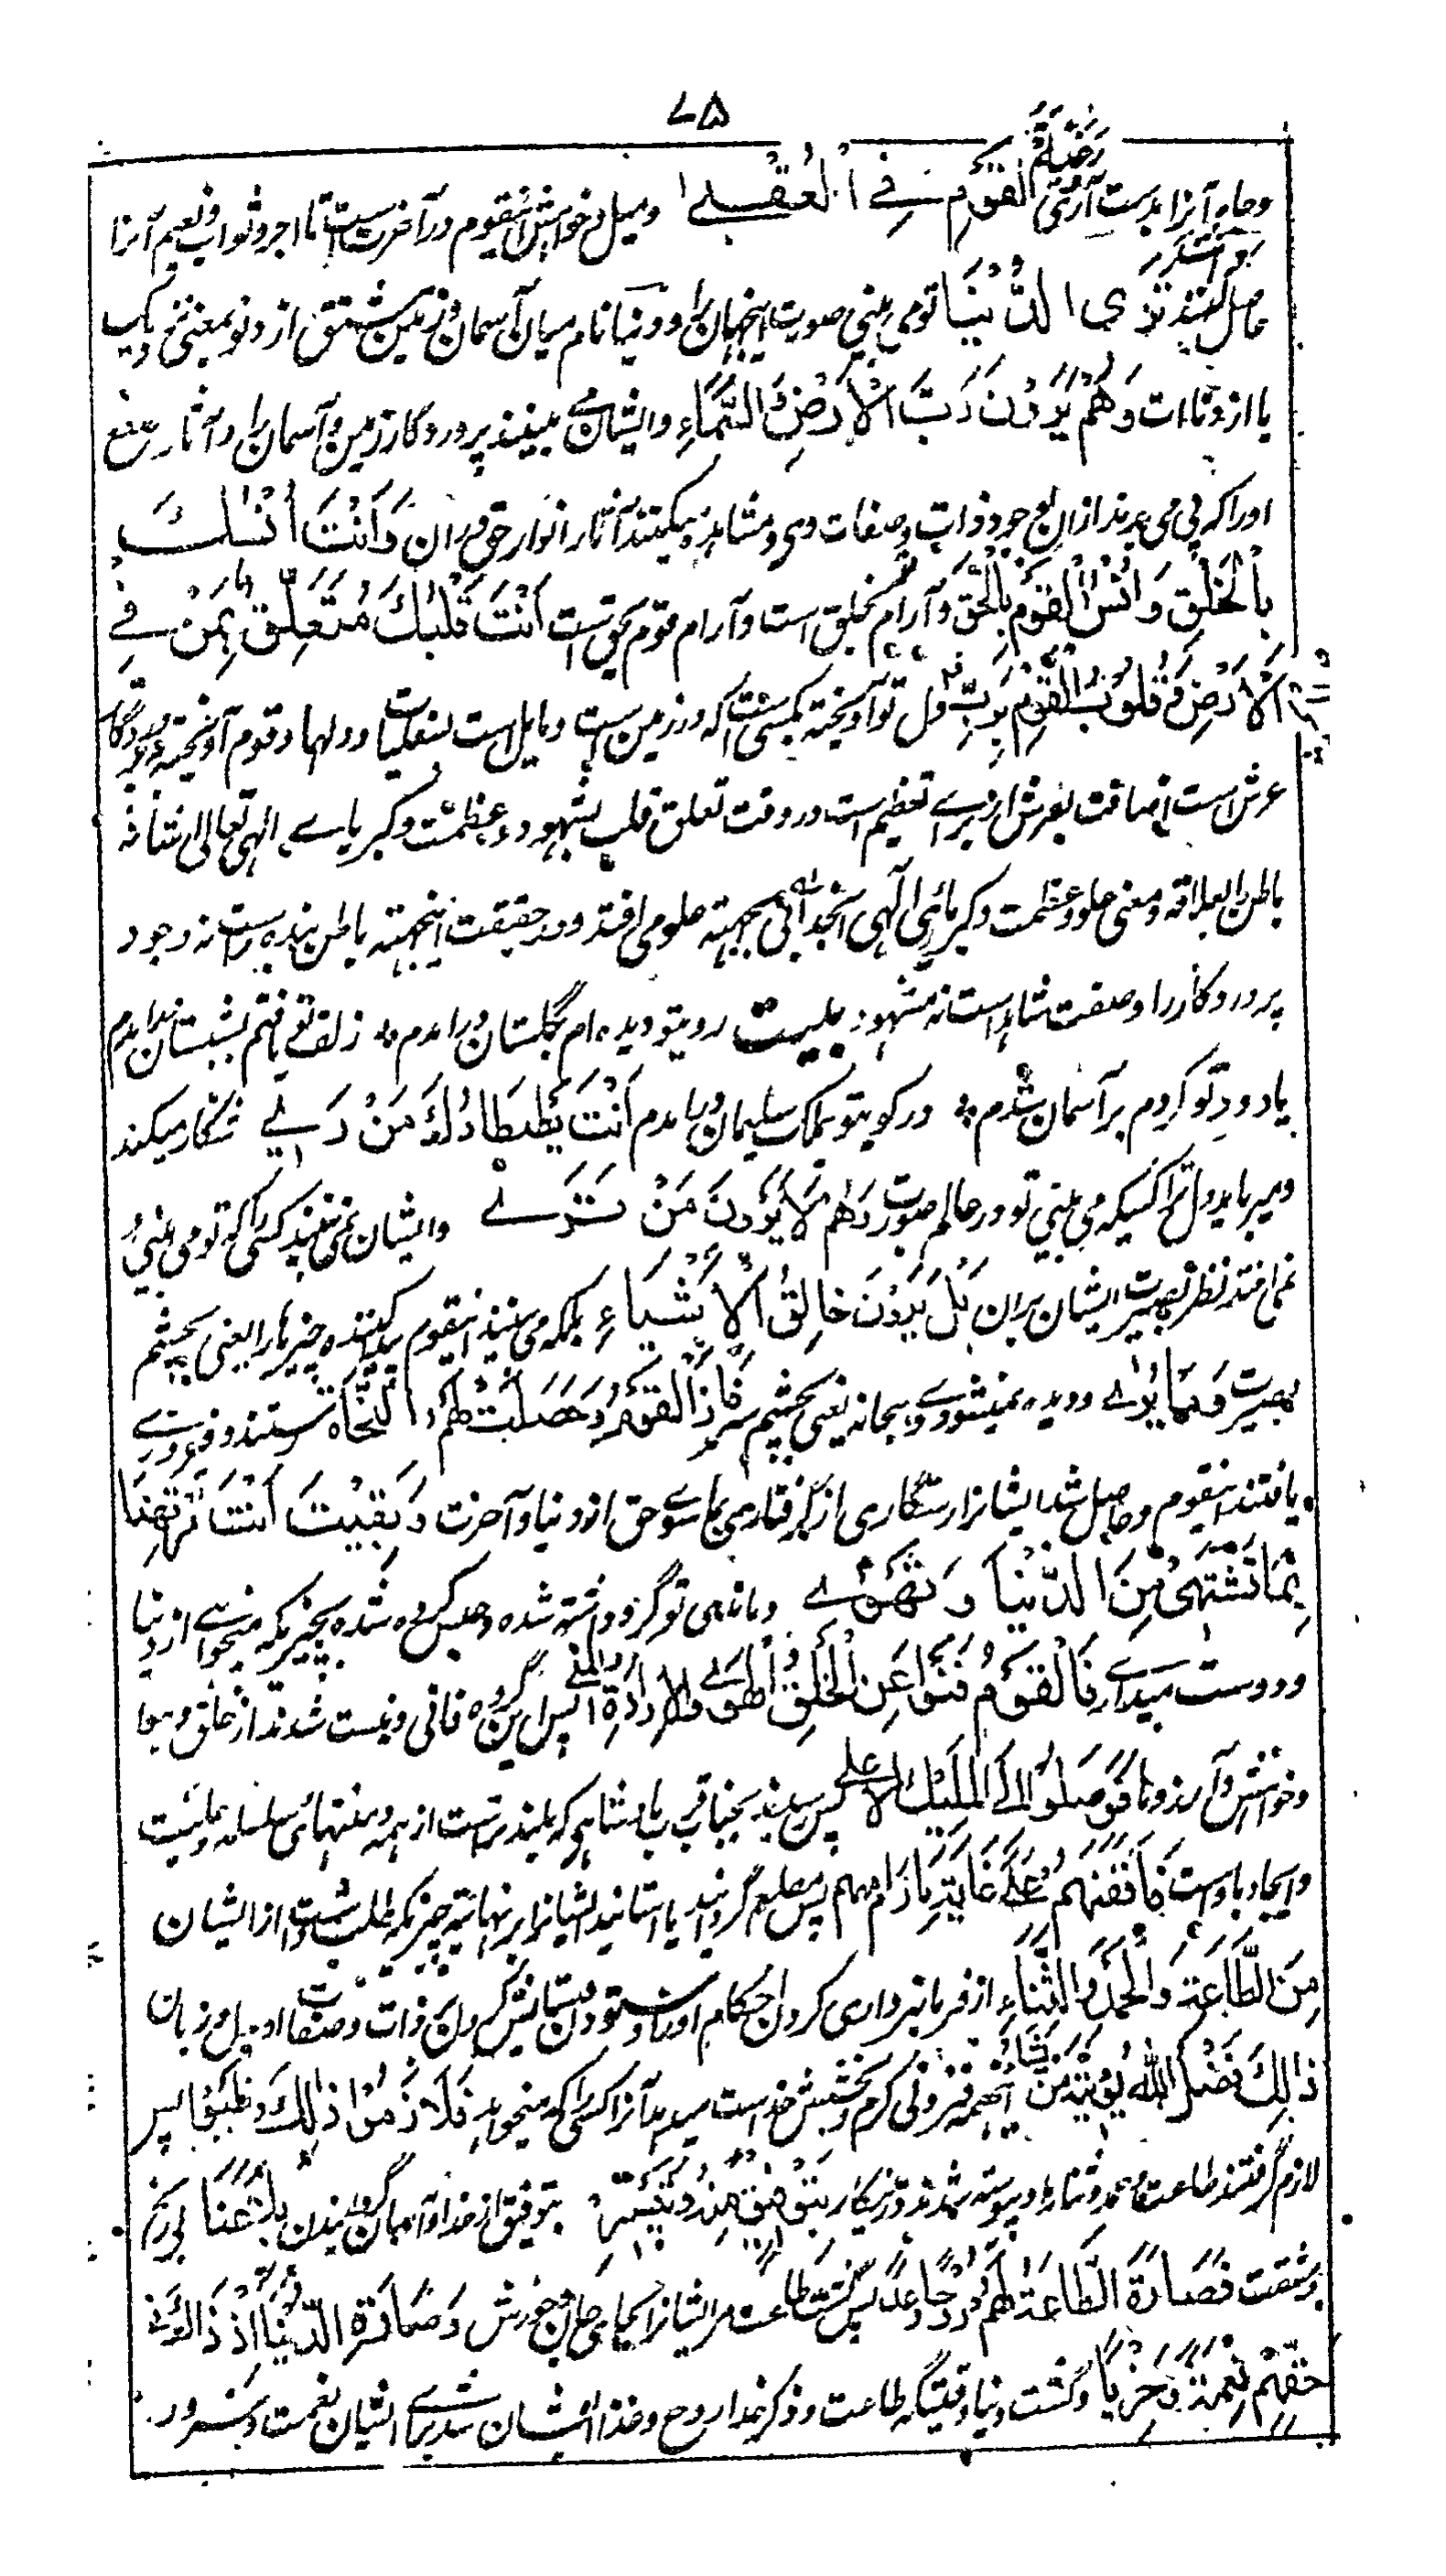 ۷۵
وجاه آنرا بدست آری رَغْبَةُ القَوْمِ فِي الْعُقْبَى و میل و خواهش اینقوم در آخرت ست تا اجر و ثواب و نعیم آنرا
حاصل کنند تَرَى الدُّنْيَا تو می بینی صورت اینجهان را و دنیا نام میان آسمان و زمین مشتق از دنو بمعنی نزدیک
یا از دناءت وَهُمْ يَرَوْنَ رَبَّ الْأَرْضِ وَالسَّمَاءِ و ایشان می بینند پروردگار زمین و آسمان را و آثار صنع
اورا که پی می برند ازان بوجود ذات و صفات وی و مشاهده میکنند آثار انوار حق در ان وَأَنْتَ أُنْسُكَ
بِالْخَلْقِ وَأُنْسُ الْقَوْمِ بِالْحَقِّ و آرام تو بخلق است و آرام قوم بحق ست أَنْتَ قَلْبُكَ مُتَعَلِّقٌ بِمَنْ فِي
الْأَرْضِ وَقُلُوبُ الْقَوْمِ بِرَبِّ دل تو آویخته بکسی ست که در زمین ست و مایل است بسفلیات و دلهای قوم آویخته بپروردگار
عرش است اضافت بعرش از برای تعظیم است در وقت تعلق قلب بشهود عظمت و کبریای الهی تعالی شانه
باطن را بعلاقه معنی علو و عظمت و کبریای الهی انجذابی بجهته علو می افتد و در حقیقت اینجهته باطن بنده راست نه وجود
پروردگار را و صفت شاهد است نه مشهود بیت روی تو دیده ام گلستان در آمدم ٭ زلف تو یافتم بشبستان در آمدم
یاد دو تو کردم بر آسمان شدم ٭ در کوی تو بملک سلیمان در آمدم أَنْتَ يَصْطَادُكَ مَنْ تَرَى شکار میکند
و میرباید دل ترا کسیکه می بینی تو در عالم صورت وَهُمْ لَا يَرَوْنَ مَنْ تَرَى و ایشان نمی بینند کسی را که تو می بینی و
نمی افتد نظر بصیرت ایشان بران بَلْ يَرَوْنَ خَالِقَ الْأَشْيَاءِ بلکه می بینند اینقوم پیدا کننده چیزها را یعنی بچشم
بصیرت وَمَا يُرَى و دیده نمیشود وی سبحانه یعنی بچشم سر فَازَ الْقَوْمُ وَحَصَلَتْ لَهُمُ النَّجَاةُ رستند و فیروزی
یافتند اینقوم و حاصل شد ایشانرا رستگاری از گرفتاری بماسوای حق از دنیا و آخرت وَبَقِيتَ أَنْتَ مُرْتَهِنًا
بِمَا تَشْتَهِي مِنَ الدُّنْيَا وَتَهْوَى و ماندی تو گرو داشته شده و حبس کرده شده بچیزیکه میخواهی از دنیا
و دوست میداری فَالْقَوْمُ فَنَوْا عَنِ الْخَلْقِ وَالْهَوَى وَالْإِرَادَةِ وَالْمُنَى پس این گروه فانی و نیست شدند از خلق و هوا
و خواهش و آرزوها فَوَصَلُوا إِلَى الْمَلِكِ الْأَعْلَى پس رسیدند بجناب قرب پادشاهی که بلندتر است از همه و منتهای سلسله علیت
و ایجاد با اوست فَأَوْقَفَهُمْ عَلَى غَايَةِ مَا رَامَ مِنْهُمْ پس مطلع گردانید یا استانید ایشانرا بر نهایت چیزیکه طلب داشت از ایشان
مِنَ الطَّاعَةِ وَالْحَمْدِ وَالثَّنَاءِ از فرمانبرداری کردن احکام اورا و ستودن و ستایش کردن ذات و صفات او بدل و زبان
ذَالِكَ فَضْلُ اللّٰهِ يُؤْتِيهِ مَنْ يَشَاءُ اینهمه فزونی کرم و بخشش خداست میدهد آنرا کسی را که میخواهد فَلَازَمُوا ذَلِكَ وَوَاظَبُوا پس
لازم گرفتند طاعت و حمد و ثنا را و پیوسته شدند درینکار بِتَوْفِيقٍ مِنْهُ وَتَيْسِيرٍ بتوفیق از خدا و آسان گردانیدن بِلَا عَنَاءٍ بی رنج
و مشقت فَصَارَتِ الطَّاعَةُ لَهُمْ رُوحًا وَغِذَاءً پس گشت طاعت مر ایشانرا بجای جان و خورش وَصَارَتِ الدُّنْيَا إِذْ ذَاكَ فِي
حَقِّهِمْ نِعْمَةً وَخِزْيًا و گشت دنیا وقتیکه طاعت و ذکر خدا روح و غذای ایشان شد برای ایشان نعمت و سرور